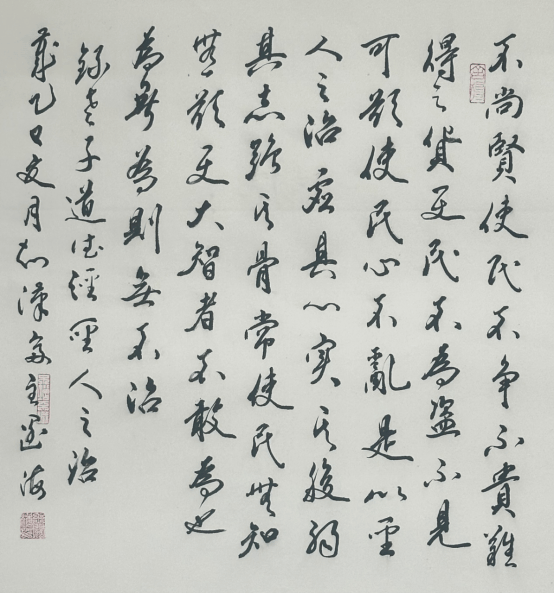 不尚賢使民不争不貴難
得之貨使民不為盗不見
可欲使民心不亂是以聖
人之治虛其心實其腹弱
其志強其骨常使民無知
無欲使夫智者不敢為也
為無為則無不治
錄老子道德經聖人之治
歲乙巳夏月於漢